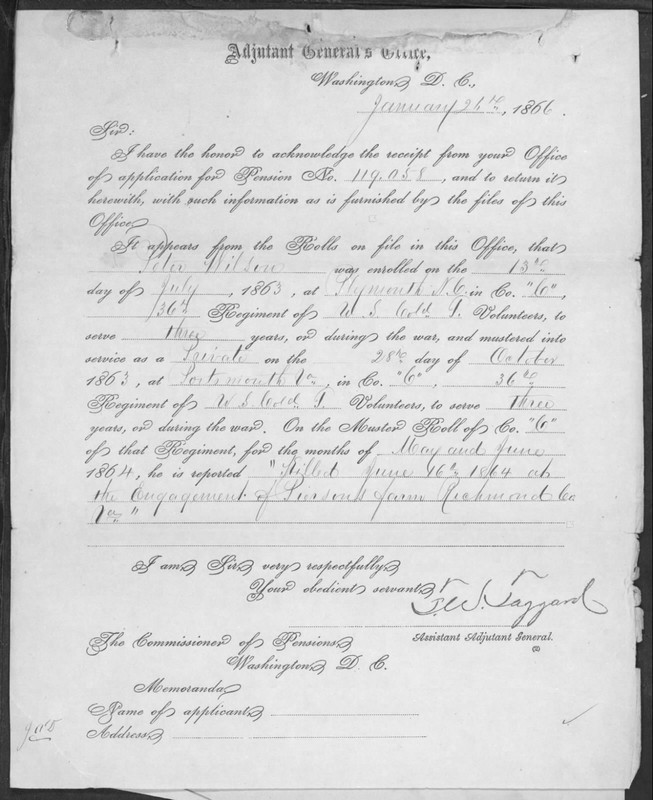 Adjutant General's Office,
Washington, D. C.,
January 26th, 1866.
Sir:
I have the honor to acknowledge the receipt from your Office
of application for Pension No. 119.058, and to return it
herewith, with such information as is furnished by the files of this
Office.
It appears from the Rolls on file in this Office, that
Peter Wilson was enrolled on the 13th
day of July, 1863, at Plymouth N.C. in Co. "C",
36th Regiment of U S Cold. T. Volunteers, to
serve three years, or during the war, and mustered into
service as a Private on the 28th day of October
1863, at Portsmouth Va, in Co. "C", 36th
Regiment of U S Cold. T. Volunteers, to serve Three
years, or during the war. On the Muster Roll of Co. "C"
of that Regiment, for the months of May and June
1864, he is reported "Killed June 16th 1864 at
the Engagement of Piersons farm Richmond Co
Va"
I am, Sir, very respectfully,
Your obedient servant,
Assistant Adjutant General.
The Commissioner of Pensions,
Washington, D. C.
Memoranda,
Name of applicant,
Address,